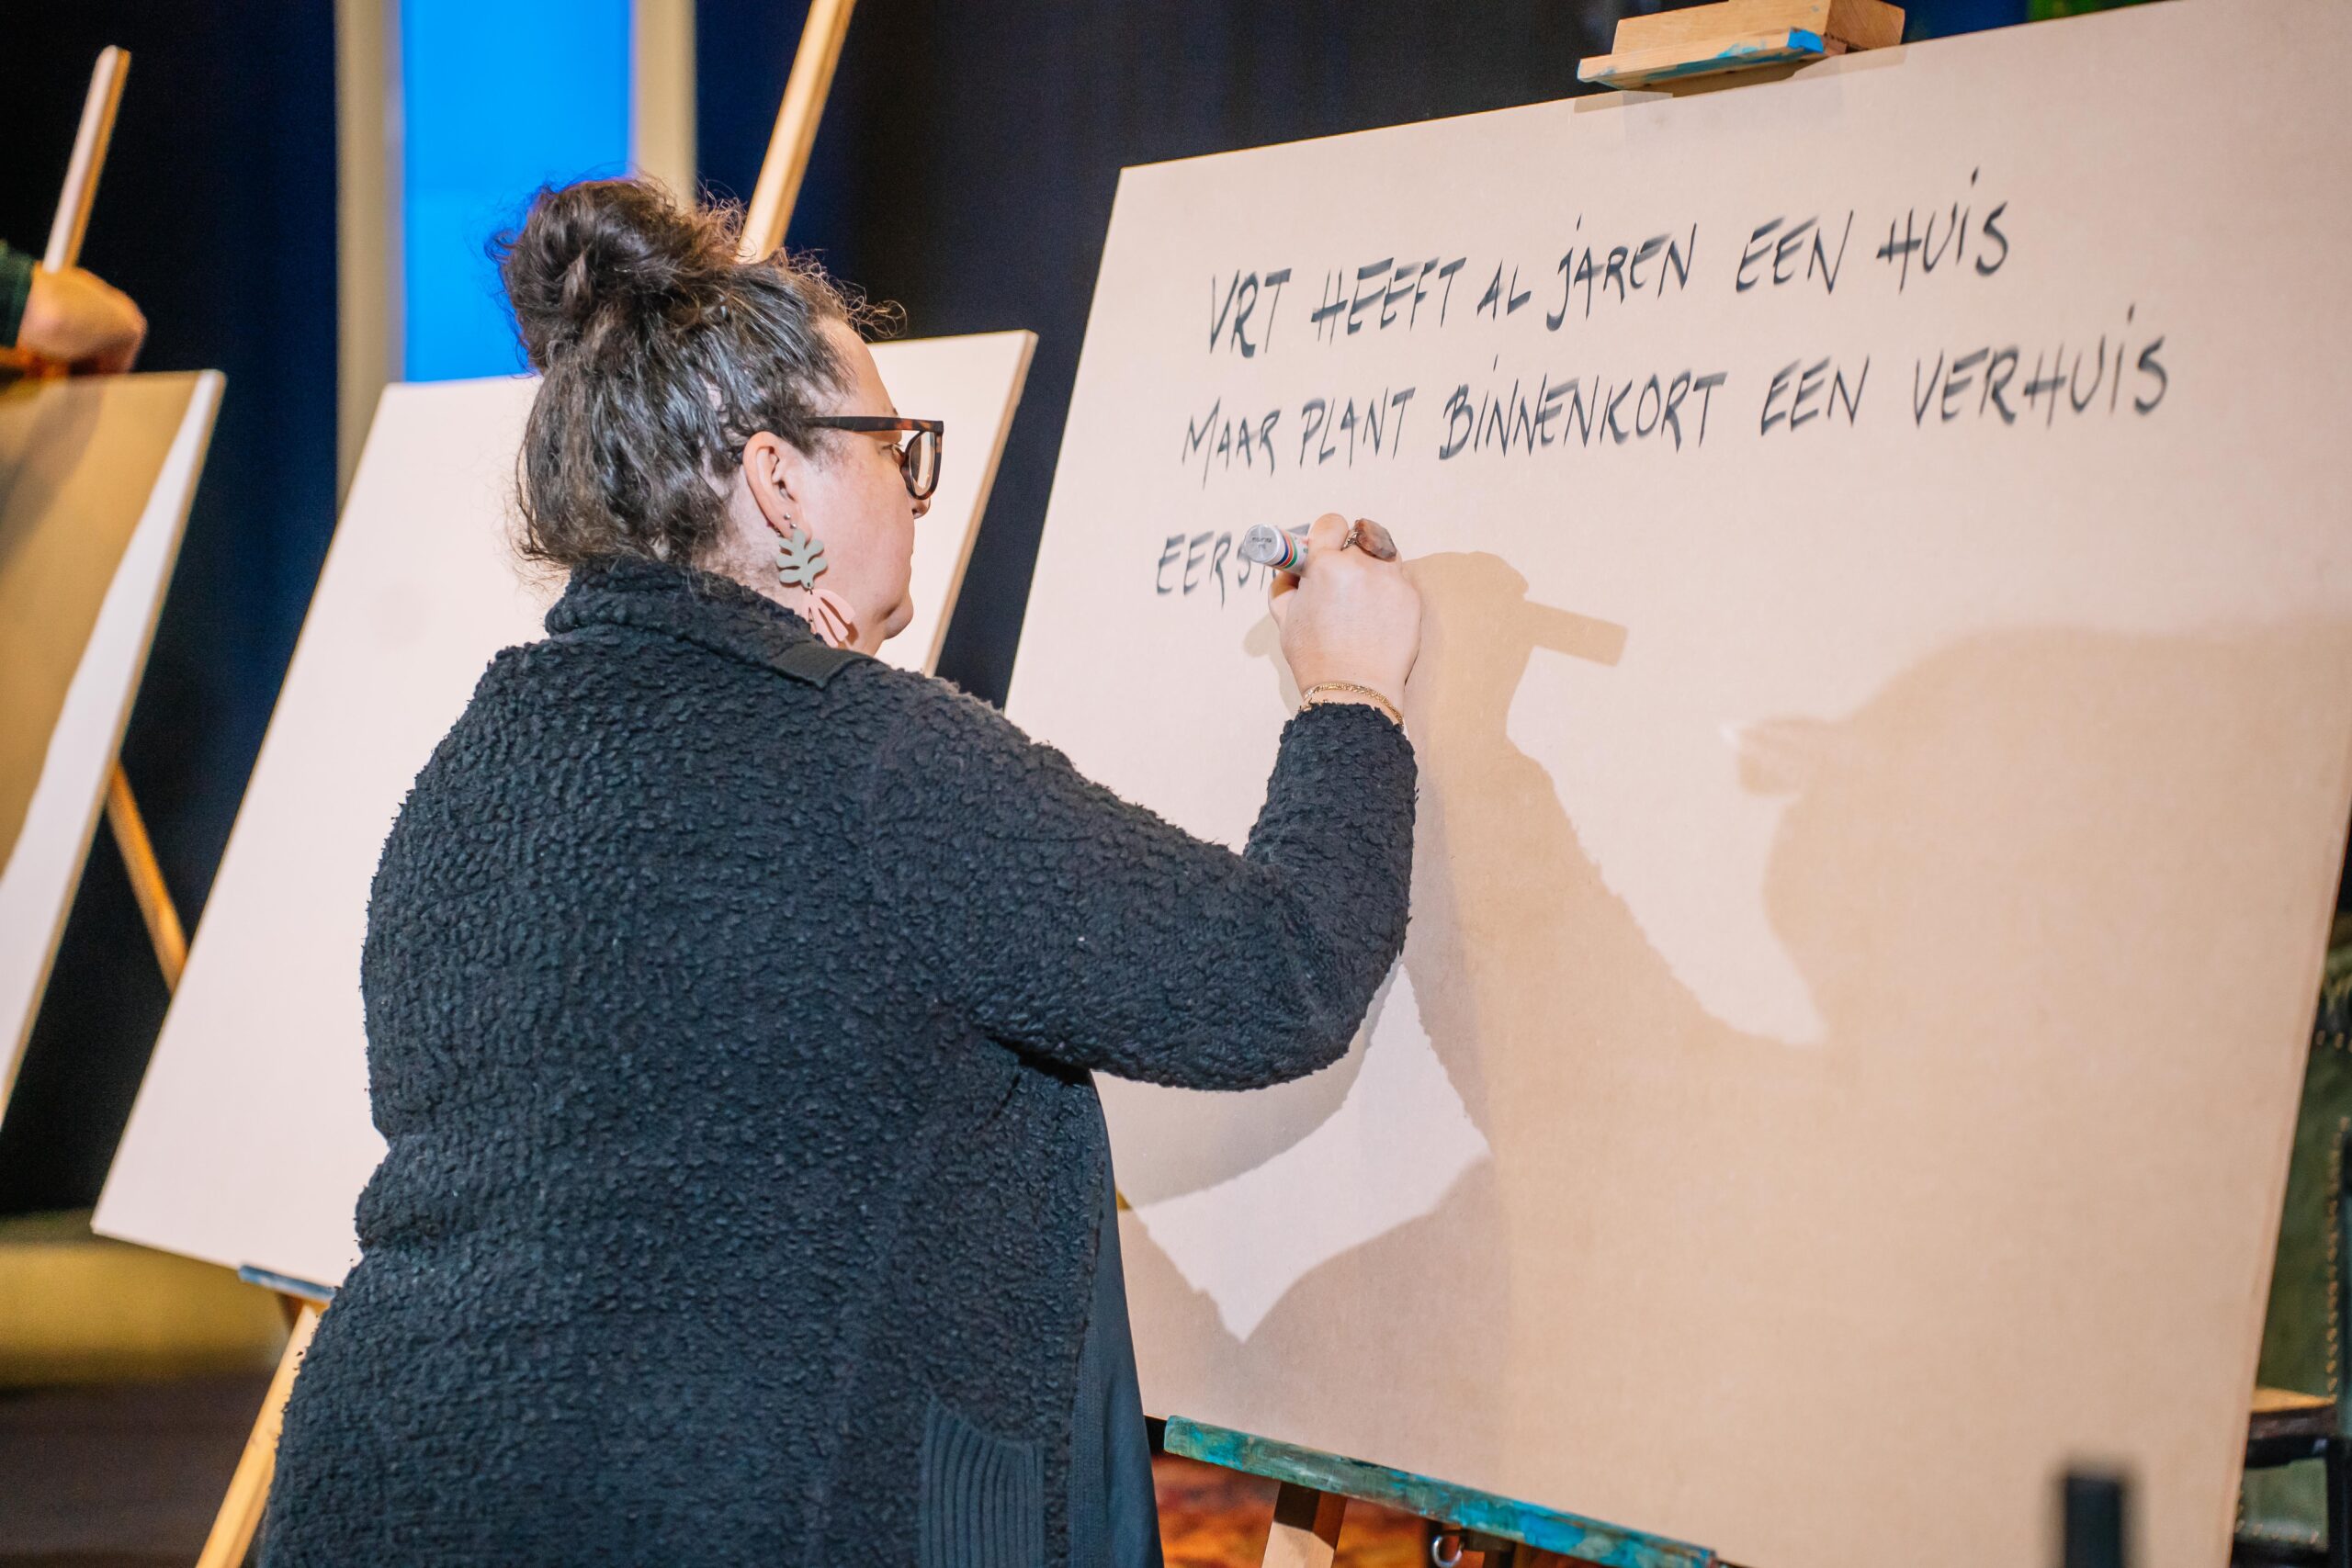 VRT HEEFT AL JAREN EEN HUIS
MAAR PLANT BINNENKORT EEN VERHUIS